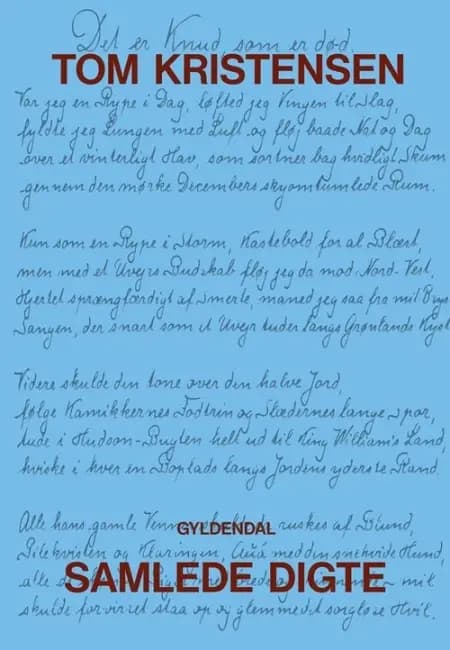 Det er Knud, som er død.
TOM KRISTENSEN
Var jeg en Rype i Dag, løfted jeg Vingen til Slag,
fyldte jeg Lungen med Luft og fløj baade Nat og Dag
over et vinterligt Hav, som sortner bag hvidligt Skum
gennem den mørke Decembers skyomtumlede Rum.
Kun som en Rype i Storm, Kastebold for al Blæst,
men med et Uvejrs Budskab fløj jeg da mod Nord-Vest,
Hjertet sprængfærdigt af Smerte, maned jeg saa fra mit Brys
Sangen, der snart som et Uvejr tuder langs Grønlands Kyst
Videre skulde den tone over den halve Jord,
følge Kamikkernes Fodtrin og Slædernes lange Spor,
tude i Hudson-Bugten helt ud til King William's Land,
hviske i hver en Boplads langs Jordens yderste Rand.
Alle hans gamle Venner skulde ruskes af Blund,
GYLDENDAL
Pilekvisten og Klaringen, Aua med din snehvide Hund,
alle
SAMLEDE DIGTE
mil
skulde forvirret staa op og glemme det sorgløse Hvil.